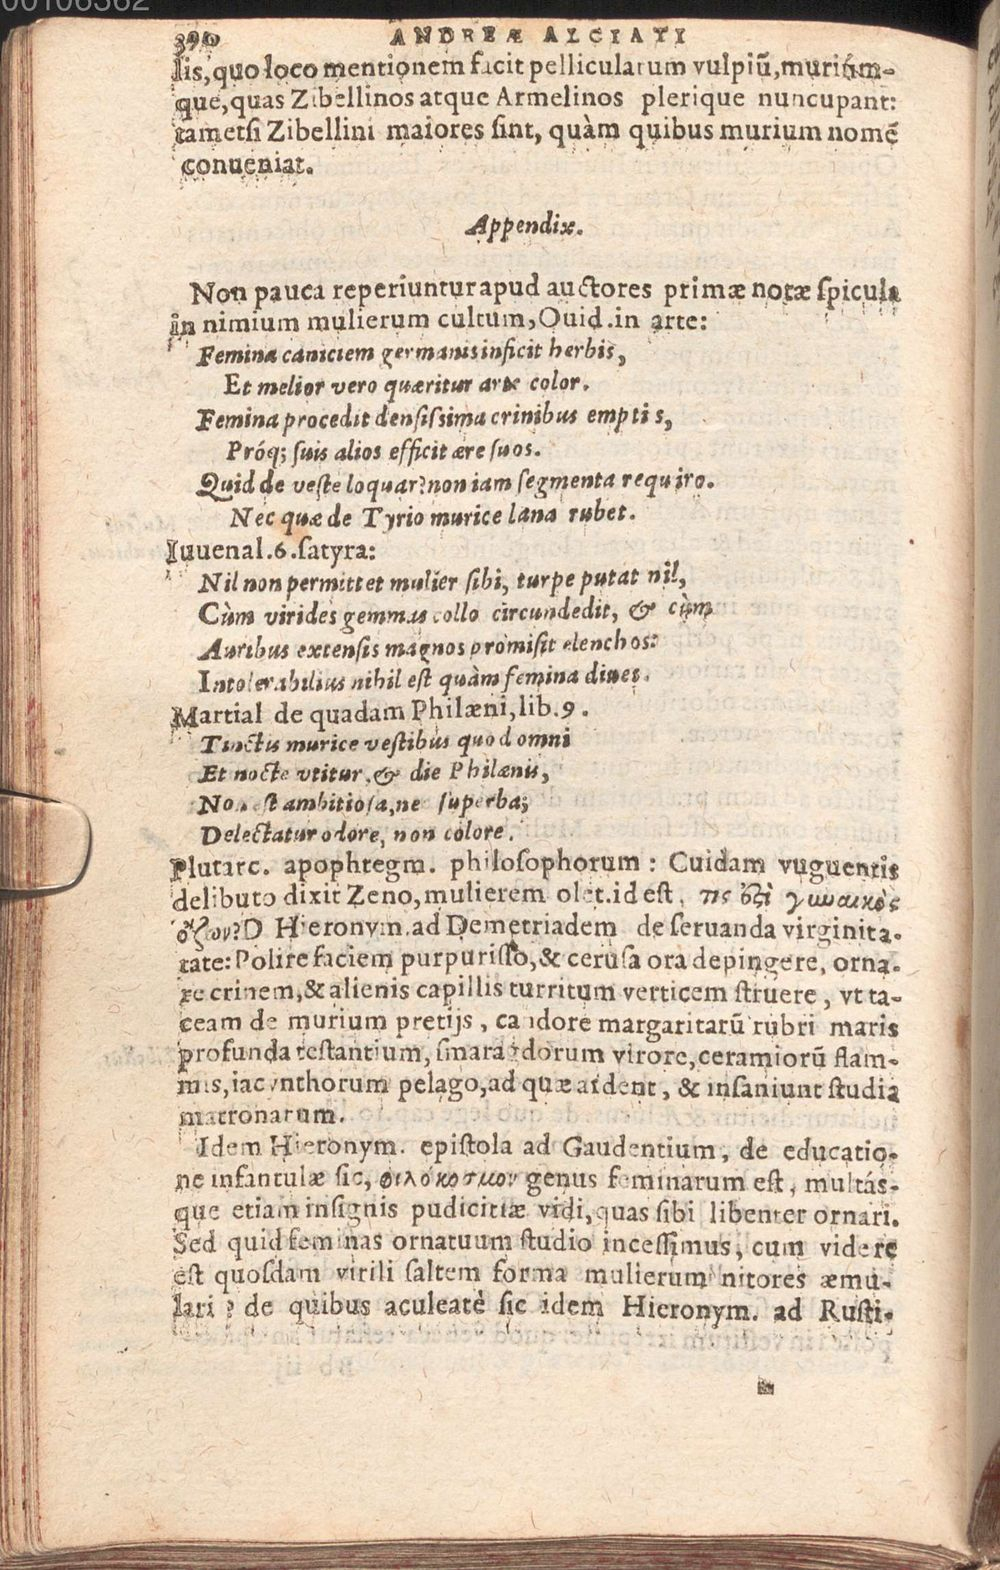 00106362
390 ANDREÆ ALCIATI
lis, quo loco mentionem facit pellicularum vulpiū, muriúm-
que, quas Zibellinos atque Armelinos plerique nuncupant:
tametsi Zibellini maiores sint, quàm quibus murium nomē
conueniat.
Appendix.
Non pauca reperiuntur apud auctores primæ notæ spicula
in nimium mulierum cultum, Ouid. in arte:
Femina caniciem germanis inficit herbis,
Et melior vero quæritur arte color.
Femina procedit densissima crinibus emptis,
Próq; suis alios efficit ære suos.
Quid de veste loquar? non iam segmenta requiro.
Nec quæ de Tyrio murice lana rubet.
Iuuenal. 6. satyra:
Nil non permittet mulier sibi, turpe putat nil,
Cùm virides gemmas collo circundedit, & cùm
Auribus extensis magnos promisit elenchos:
Intolerabilius nihil est quàm femina diues.
Martial de quadam Philæni, lib. 9.
Tinctis murice vestibus quod omni
Et nocte vtitur, & die Philænis,
Non est ambitiosa, ne superba;
Delectatur odore, non colore.
Plutarc. apophtegm. philosophorum: Cuidam vuguentis
delibuto dixit Zeno, mulierem olet. id est, τις ὅξὶ γυναικὸς
ὄζων? D Hieronym. ad Demetriadem de seruanda virginita-
tate: Polire faciem purpurisso, & cerusa ora depingere, orna-
re crinem, & alienis capillis turritum verticem struere, vt ta-
ceam de murium pretijs, candore margaritarū rubri maris
profunda testantium, smaragdorum virore, ceramiorū flam-
mis, iacynthorum pelago, ad quæ ardent, & insaniunt studia
matronarum.
Idem Hieronym. epistola ad Gaudentium, de educatio-
ne infantulæ sic, φιλόκοσμον genus feminarum est, multás-
que etiam insignis pudicitiæ vidi, quas sibi libenter ornari.
Sed quid feminas ornatuum studio incessimus, cum videre
est quosdam virili saltem forma mulierum nitores æmu-
lari? de quibus aculeatè sic idem Hieronym. ad Rusti-